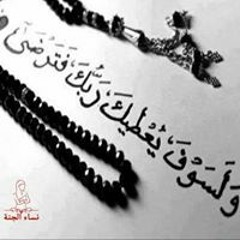 وَلَسَوْفَ يُعْطِيكَ رَبُّكَ فَتَرْضَىٰ
نساء الجنة